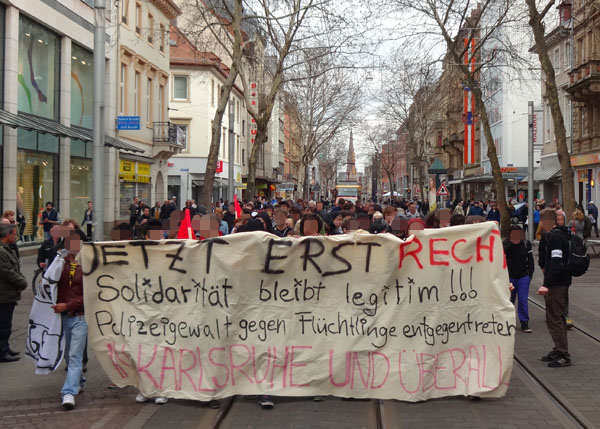 JETZT ERST RECHT
Solidarität bleibt legitim!!!
Polizeigewalt gegen Flüchtlinge entgegentreten
IN KARLSRUHE UND ÜBERALL